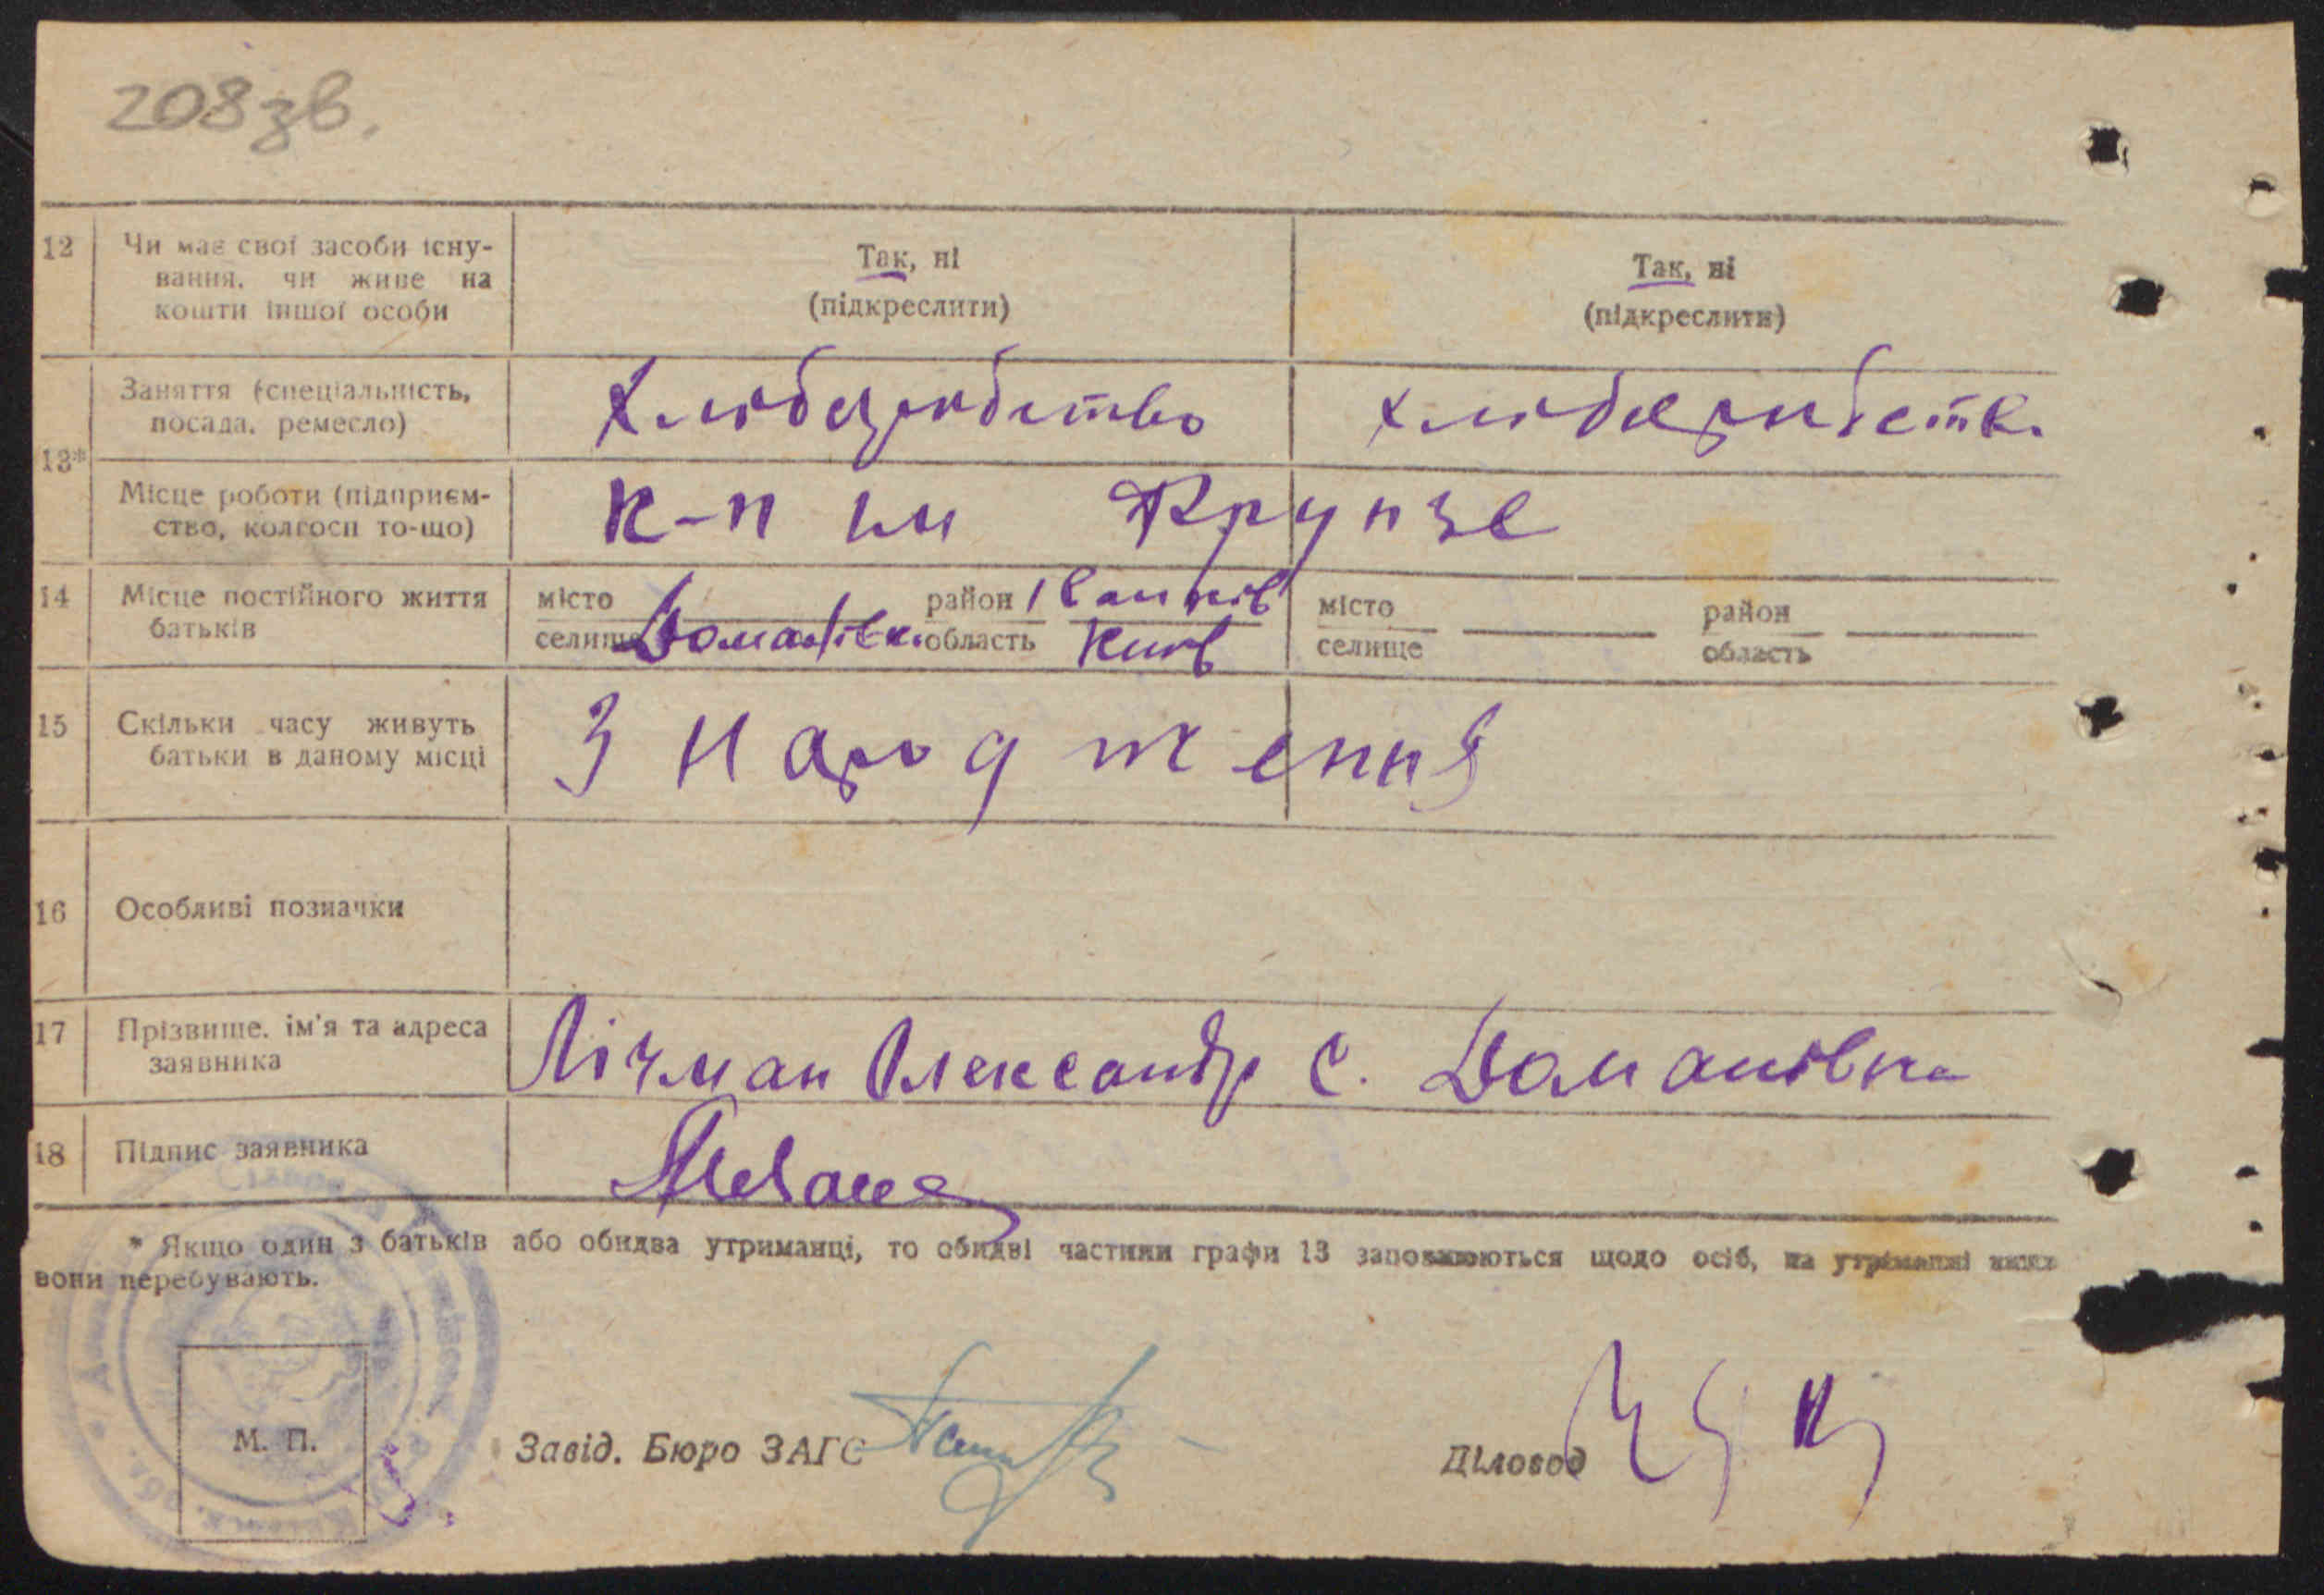 208зв.
12 Чи має свої засоби існу-
вання, чи живе на
кошти іншої особи
Так, ні
(підкреслити)
Так, ні
(підкреслити)
13*
Заняття (спеціальність,
посада, ремесло)
Хліборобство
хліборобств.
Місце роботи (підприєм-
ство, колгосп то-що)
к-п им Фрунзе
14 Місце постійного життя
батьків
місто район Іванків
селище Доманівка область Київ
місто район
селище область
15 Скільки часу живуть
батьки в даному місці
З народження
16 Особливі позначки
17 Прізвище, ім'я та адреса
заявника
Лічман Олександр с. Доманівка
18 Підпис заявника
* Якщо один з батьків або обидва утриманці, то обидві частини графи 13 заповнюються щодо осіб, на утриманні яких
вони перебувають.
М. П.
Завід. Бюро ЗАГС
Діловод